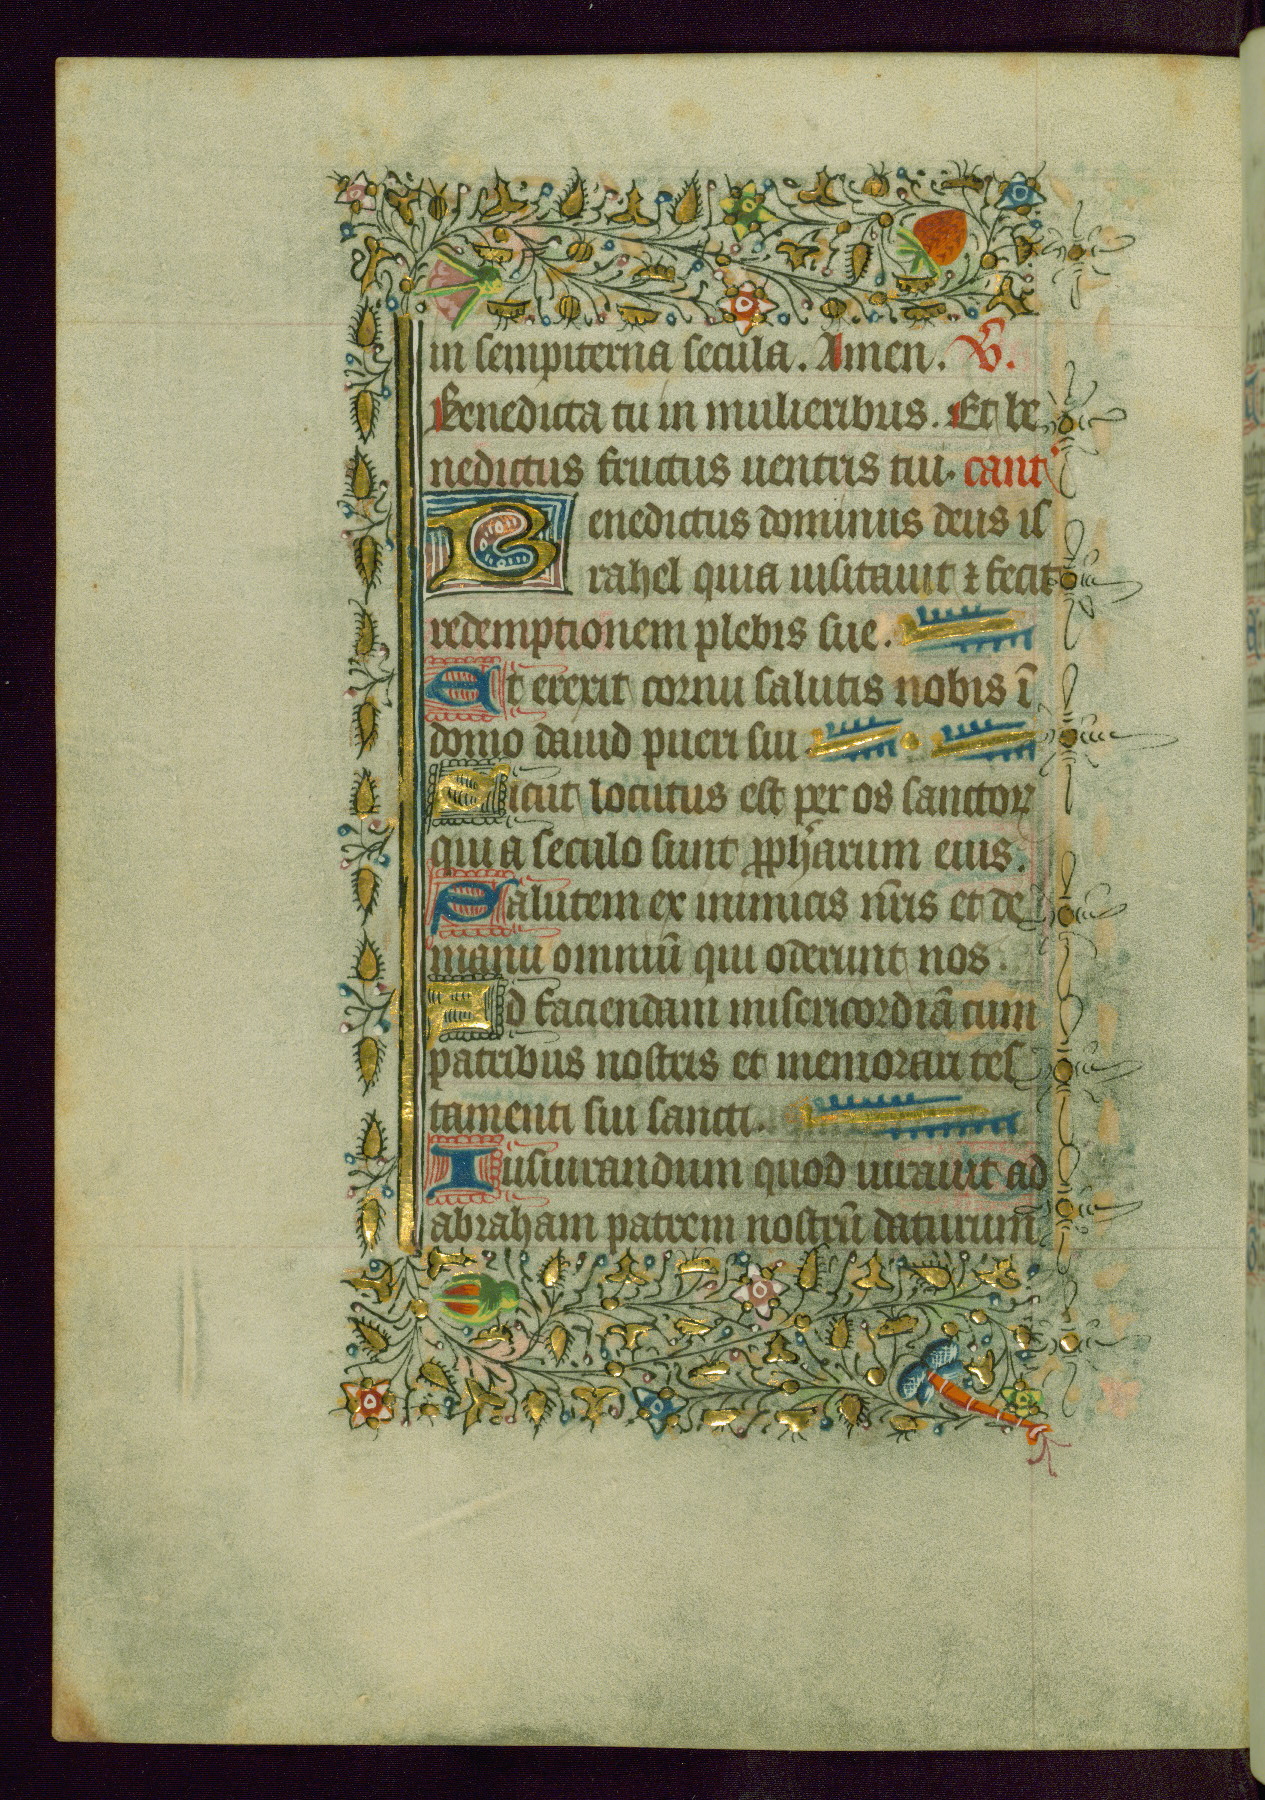 in sempiterna secula. Amen. V.
Benedicta tu in mulieribus. Et be
nedictus fructus uentris tui. cant'
Benedictus dominus deus is
rahel quia uisitauit ⁊ fecit
redemptionem plebis sue.
Et erexit cornu salutis nobis ī
domo dauid pueri sui
Sicut locutus est per os sanctoꝝ
qui a seculo sunt ꝓph̄arum eius.
Salutem ex inimicis nr̄is et de
manu omniū qui oderunt nos.
Ad faciendam misericordiā cum
patribus nostris et memorari tes
tamenti sui sancti.
Iusiurandum quod iurauit ad
abraham patrem nostrū daturum